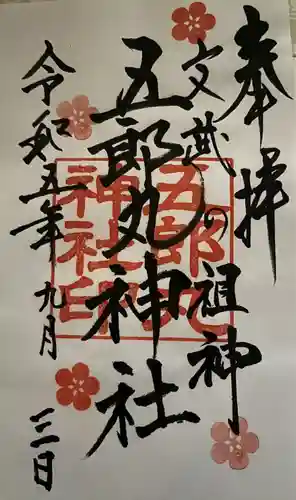 奉拝
文武の祖神
五郎丸神社
五郎丸
神社印
令和五年九月
三日